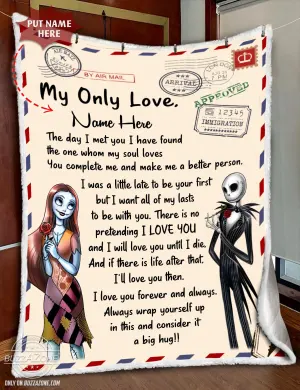 PUT NAME
HERE
BY AIR MAIL
ARRIVAL
APPROVED
12345
IMMIGRATION
My Only Love,
Name Here
The day I met you I have found
the one whom my soul loves
You complete me and make me a better person.
I was a little late to be your first
but I want all of my lasts
to be with you. There is no
pretending I LOVE YOU
and I will love you until I die.
And if there is life after that.
I'll love you then.
I love you forever and always.
Always wrap yourself up
in this and consider it
a big hug!!
BUZZAZONE
ONLY ON BUZZAZONE.COM